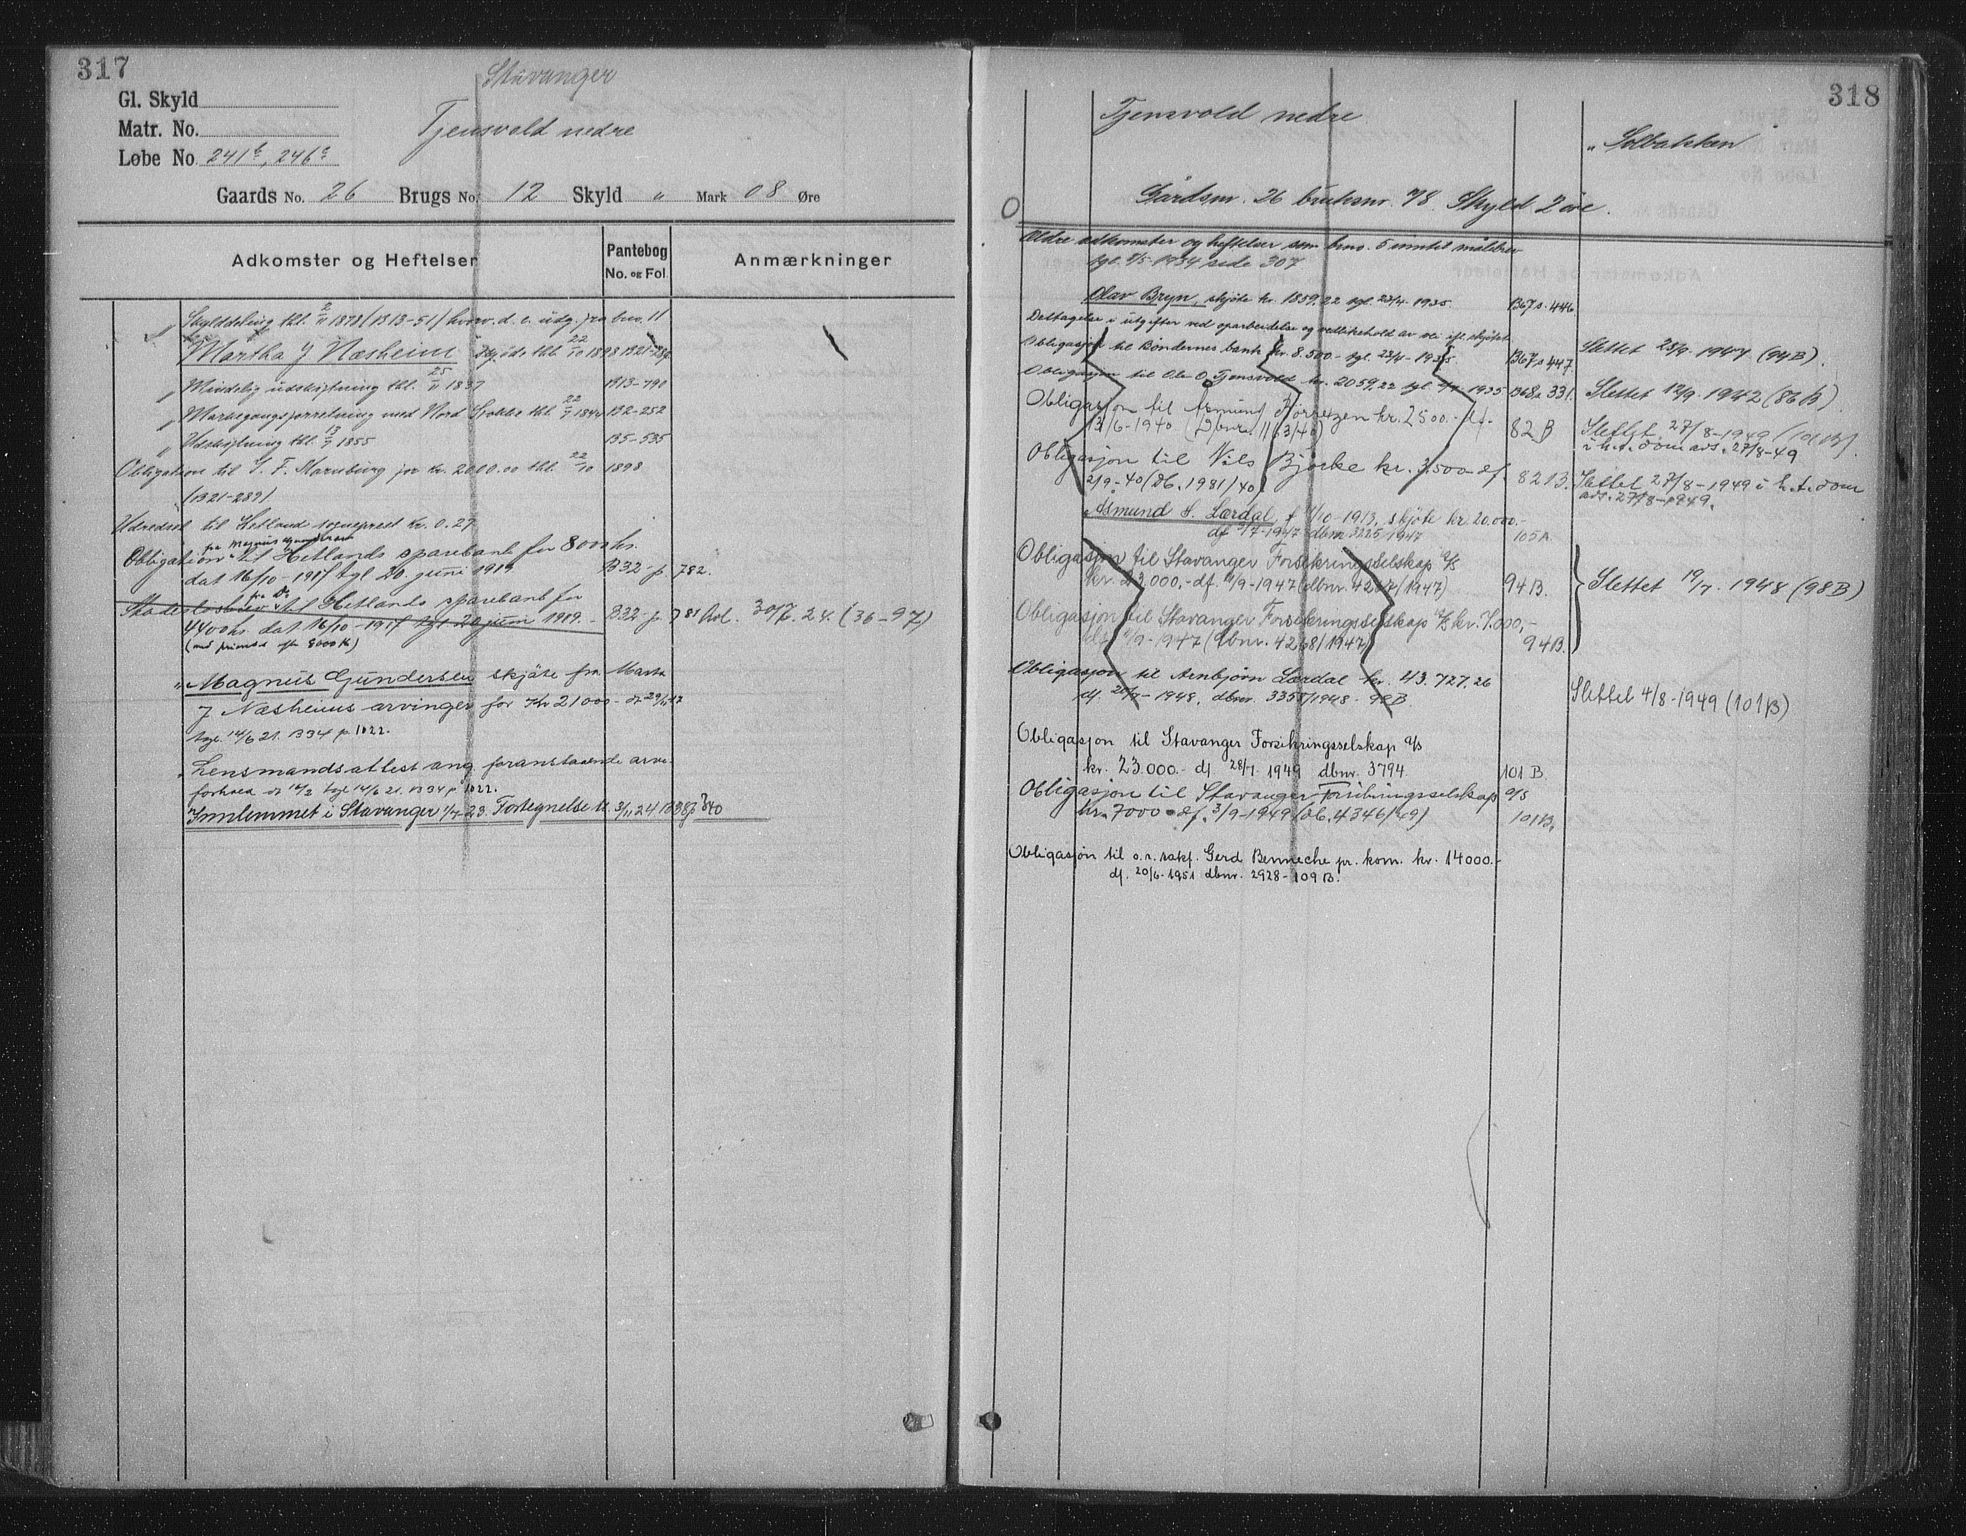 317
Stavanger
Gl. Skyld
Matr. No.
Tjensvold nedre
Løbe No. 241b, 246c
Gaards No. 26 Brugs No. 12 Skyld " Mark 08 Øre
Adkomster og Heftelser
Pantebog No. og Fol.
Anmærkninger
" Skylddeling thl. 2/11 1878 (B13-51) hvorv. d. e. udg. fra bno. 11
" Martha J Næsheim Skjøde thl. 22/10 1898 B21-
" Mindelig udskiftning thl. 25/11 1837 B13-790
" Markegangsforretning med Nord thl. 22/7 1840 B2-252
" Udskiftning thl. 13/7 1855 B5-535
Obligation til for Kr. 2000.00 thl. 22/10 1898
(B21-289)
til Hetland sogneprest kr. 0.27
fra Magnus Gundersen
Obligation til Hetlands sparebank for 8000 kr.
dat 16/10-1917 tgl 20. juni 1919 B32-p 782.
fra Do
Hetlands sparebank for
4400 kr. dat 16/10-1917 tgl 20 juni 1919. B32-p 781 Avl. 30/7. 24. (36-97)
(med prioritet eft. 8000 kr)
" Magnus Gundersen skjøte fra Marta
J Næsheims arvinger for Kr 21000-
tgl. 14/6 21. B34 p. 1022.
" Lensmandsattest ang. foranstaaende arve-
forhold tgl 14/6 21. B34 p 1022.
Innlemmet i Stavanger 1/7-23. Fortegnelse tl. 3/11 24 B38p 740
318
Tjensvold nedre
" Solbakken "
Gårdsnr. 26 bruksnr. 78. Skyld 2 øre.
Eldre adkomster og heftelser som brno. 5 inntil målebrev
tgl. 1934 side 307
Olav Bryn, skjøte kr. 1859.22 tgl 23/4-1935. B67s.446
Deltagelse i utgifter ved oparbeidelse og vedlikehold av vei ifl. skjøtet
Obligasjon til Bøndernes bank kr. 8.500- tgl. 23/4-1935 B67s.447 Slettet 23/9-1947 (94B).
Obligasjon til Ole O. Tjensvold kr. 2059.22 tgl. 1935 B68s.331. Slettet 12/9-1942 (86B)
Obligasjon til Asmund Førretzen kr. 2500.- df.
13/6-1940. (Dbnr. 1163/40) 82B Slettet 27/8-1949 (101B).
i h.t. dom avs. 27/8-49
Obligasjon til Nils Bjorke kr. 3.500- df.
2/9-40 (Db. 1981/40) 82B. Slettet 27/8-1949 i h.t. dom
avs. 27/8-1949.
Asmund A. Lærdal, f /10-1913, skjøte kr. 20.000.-
df. 3/7-1947 dbnr 3225-1947 105A
Obligasjon til Stavanger Forsikringsselskap A/S
kr. 23.000,- df. /9-1947 (dbnr. 4267/1947) 94B. Slettet 19/7. 1948 (98B)
Obligasjon til Stavanger Forsikringsselskap A/S kr. 7.000,-
df. /9-1947 (dbnr. 4268/1947) 94B.
Obligasjon til Arnbjørn Lærdal kr. 43.727,26
df. 20/7-1948, dbnr. 3358/1948 - 98B. Slettet 4/8-1949 (101B)
Obligasjon til Stavanger Forsikringsselskap A/S
kr. 23.000.- df 28/7. 1949 dbnr. 3794 101 B.
Obligasjon til Stavanger Forsikringsselskap A/S
kr. 7000.- df. 3/9-1949 (db. 4346/49) 101B.
Obligasjon til o.r. sakf. Gerd Benneche pr. kom. kr. 14000.-
df. 20/6-1951 dbnr. 2928 - 109B.